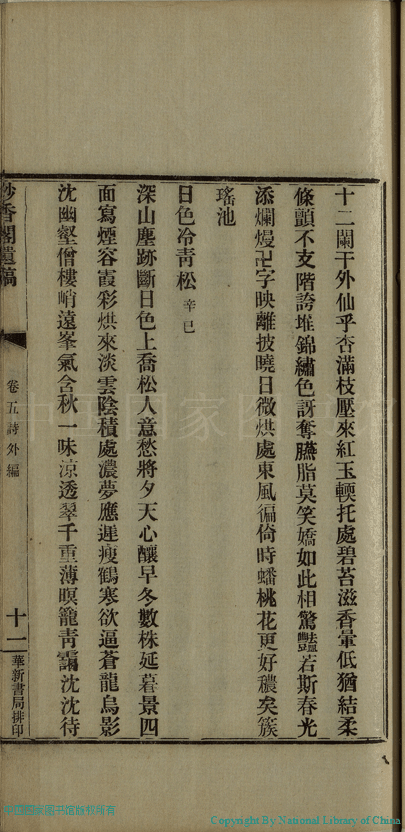 十二闌干外仙乎杏滿枝壓來紅玉輭托處碧苔滋香暈低猶結柔
條顫不支階誇堆錦繡色訝奪臙脂莫笑嬌如此相驚豔若斯春光
添爛熳卍字映離披曉日微烘處東風徧倚時蟠桃花更好穠矣簇
瑤池
日色冷青松 辛巳
深山塵跡斷日色上喬松人意愁將夕天心釀早冬數株延暮景四
面寫煙容霞彩烘來淡雲陰積處濃夢應遲瘦鶴寒欲逼蒼龍烏影
沈幽壑僧樓峭遠峯氣含秋一味涼透翠千重薄暝籠靑靄沈沈待
妙香閣遺稿
卷五詩外編
十一
華新書局排印
中国国家图书馆版权所有
Copyright By National Library of China